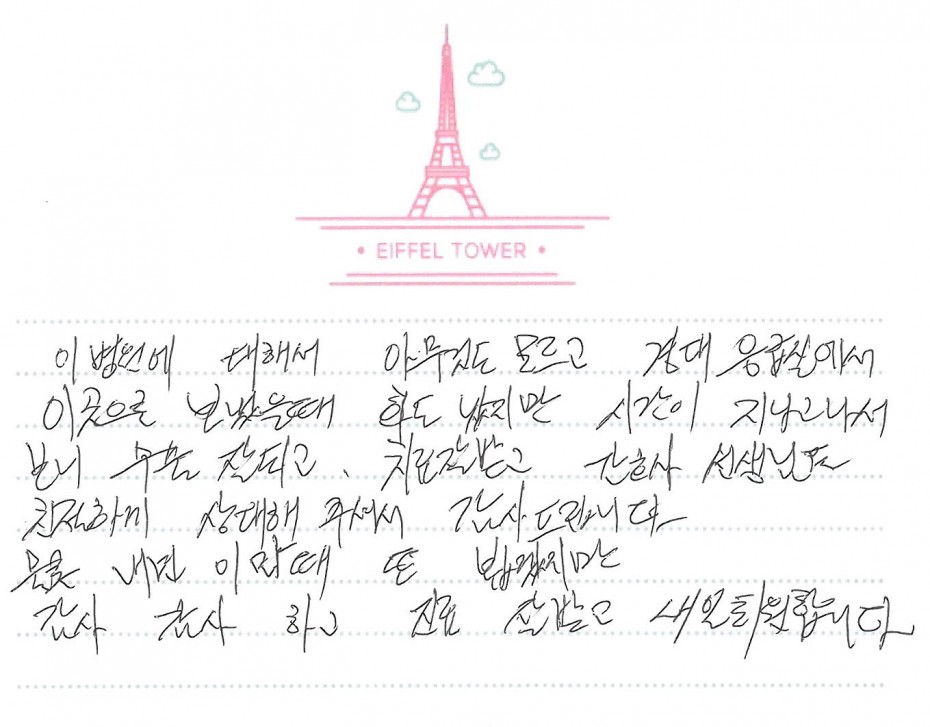 • EIFFEL TOWER •
이 병원에 대해서 아무것도 모르고 경대 응급실에서
이곳으로 보냈을때 화도 났지만 시간이 지나고나서
보니 수술 잘되고, 치료잘받고 간호사 선생님도
친절하게 상대해 주셔서 감사드립니다
내년 이맘때 또 뵙겠지만
감사 감사 하고 진료 잘받고 내일퇴원합니다